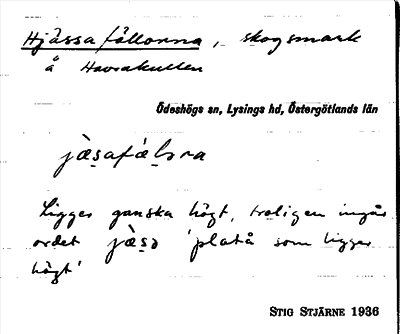 Hjässafållorna, skogsmark
å Havrakullen
Ödeshögs sn, Lysings hd, Östergötlands län
Ligger ganska högt, troligen ingår
ordet 'platå som ligger
högt'
STIG STJÄRNE 1936